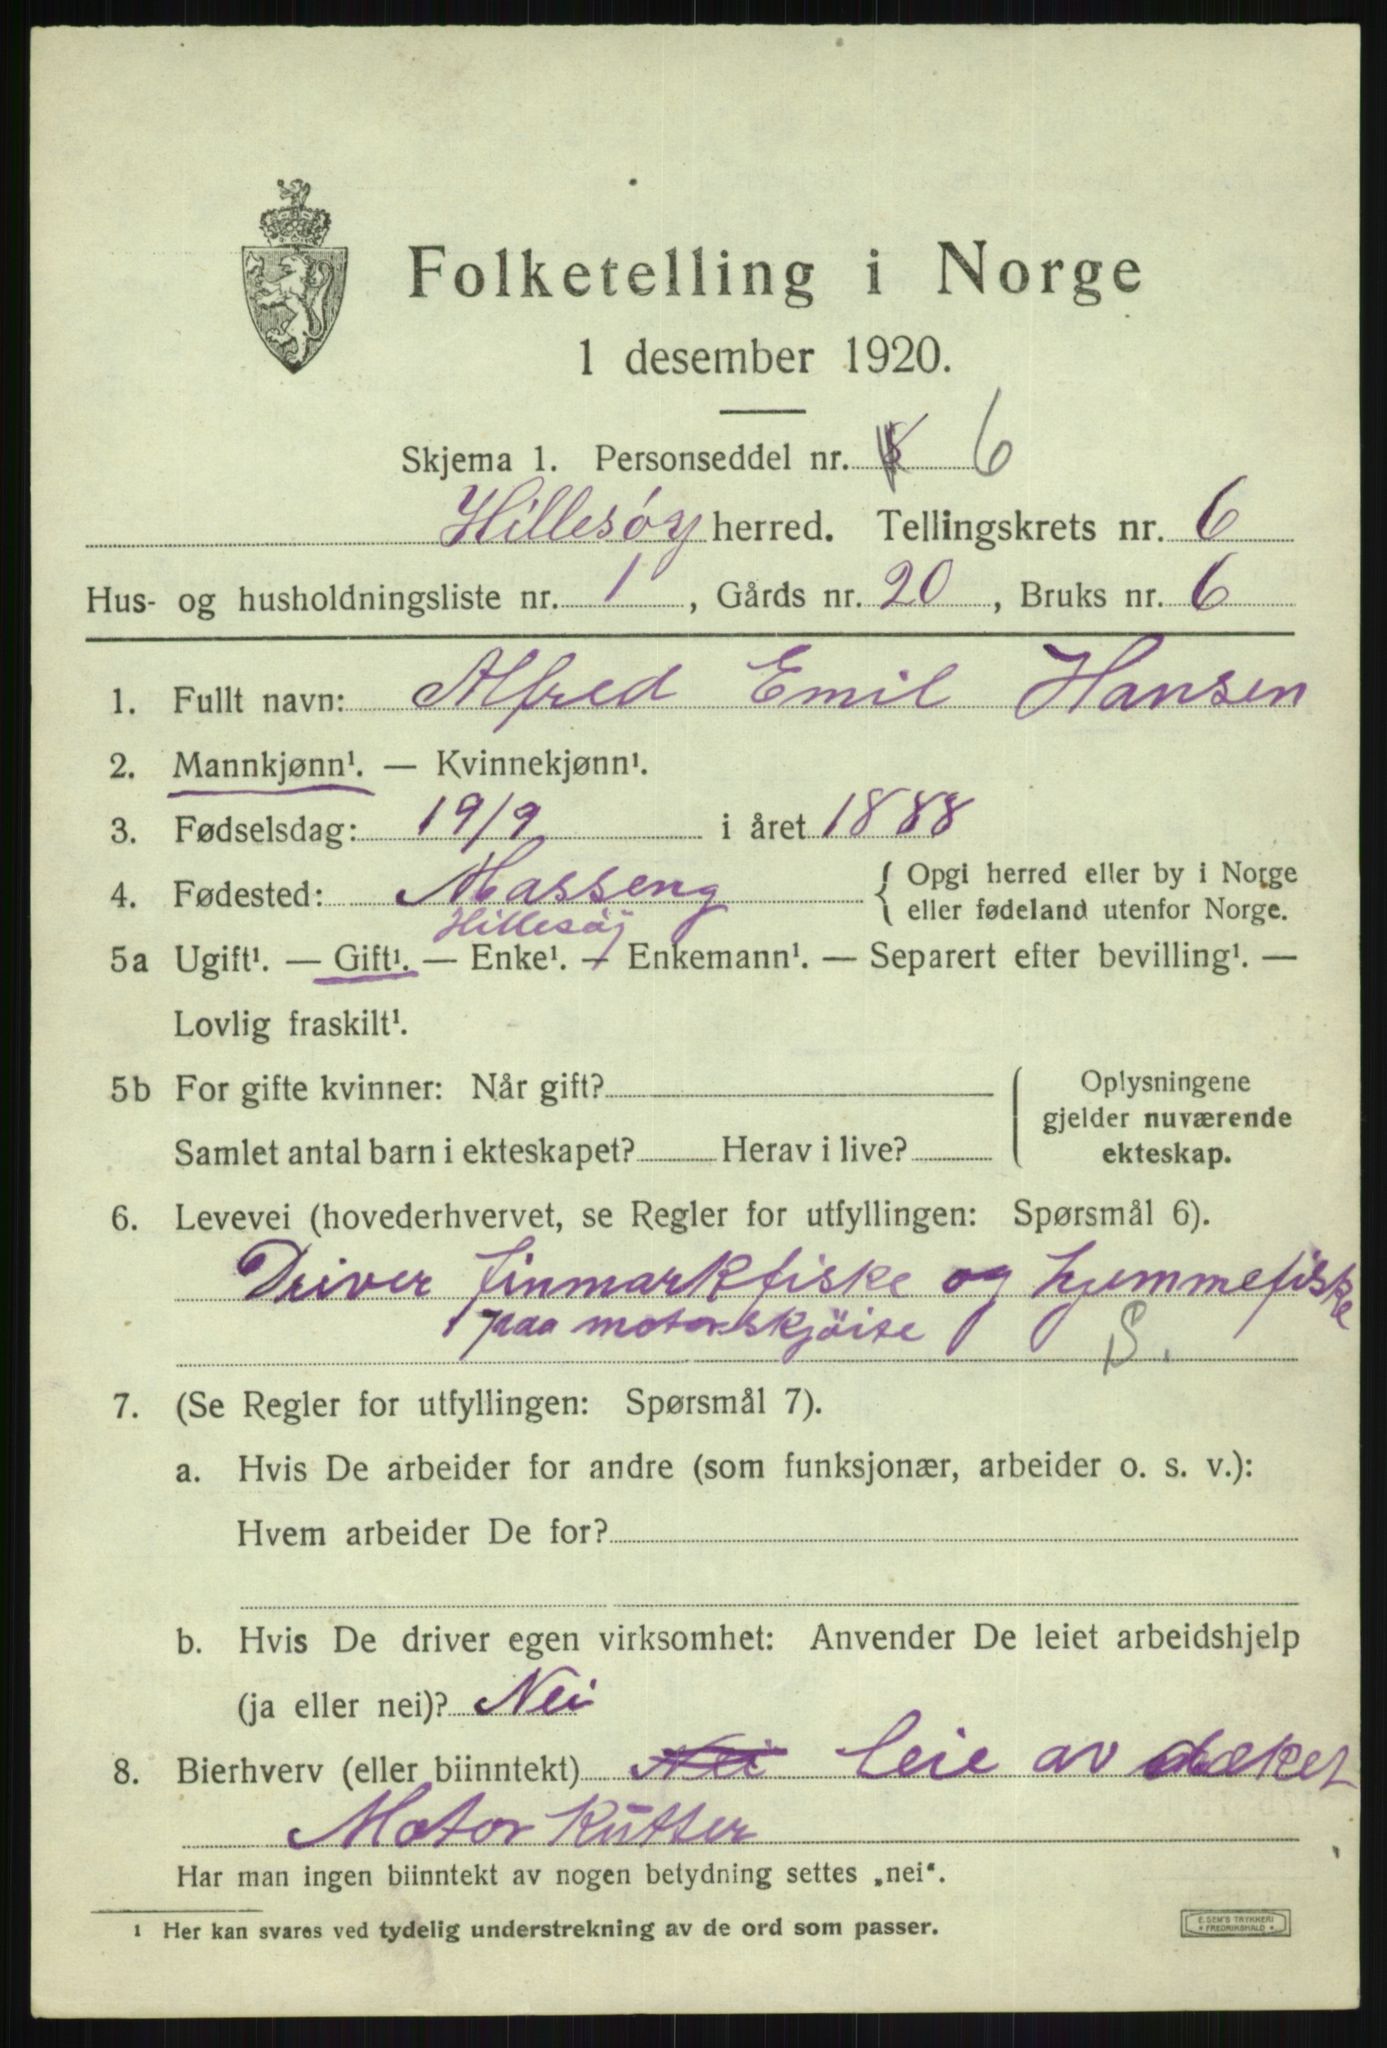 Folketelling i Norge
1 desember 1920.
Skjema 1. Personseddel nr. 6
Hillesöy herred. Tellingskrets nr. 6
Hus- og husholdningsliste nr. 1, Gårds nr. 20, Bruks nr. 6
1. Fullt navn: Alfred Emil Hansen
2. Mannkjønn¹. — Kvinnekjønn¹.
3. Fødselsdag: 19/9 i året 1888
4. Fødested: Masseng { Opgi herred eller by i Norge
eller fødeland utenfor Norge.
Hillesöy
5a Ugift¹. — Gift¹. — Enke¹. — Enkemann¹. — Separert efter bevilling¹. —
Lovlig fraskilt¹.
5b For gifte kvinner: Når gift?
Samlet antal barn i ekteskapet? Herav i live?
Oplysningene
gjelder nuværende
ekteskap.
6. Levevei (hovederhvervet, se Regler for utfyllingen: Spørsmål 6).
Driver finmarkfiske og hjemmefiske
paa motorskjöite S.
7. (Se Regler for utfyllingen: Spørsmål 7).
a. Hvis De arbeider for andre (som funksjonær, arbeider o. s. v.):
Hvem arbeider De for?
b. Hvis De driver egen virksomhet: Anvender De leiet arbeidshjelp
(ja eller nei)? Nei
8. Bierhverv (eller biinntekt) Nei leie av dækket
Motor Kutter
Har man ingen biinntekt av nogen betydning settes „nei“.
1 Her kan svares ved tydelig understrekning av de ord som passer.
E. SEM'S TRYKKERI
* FREDRIKSHALD *